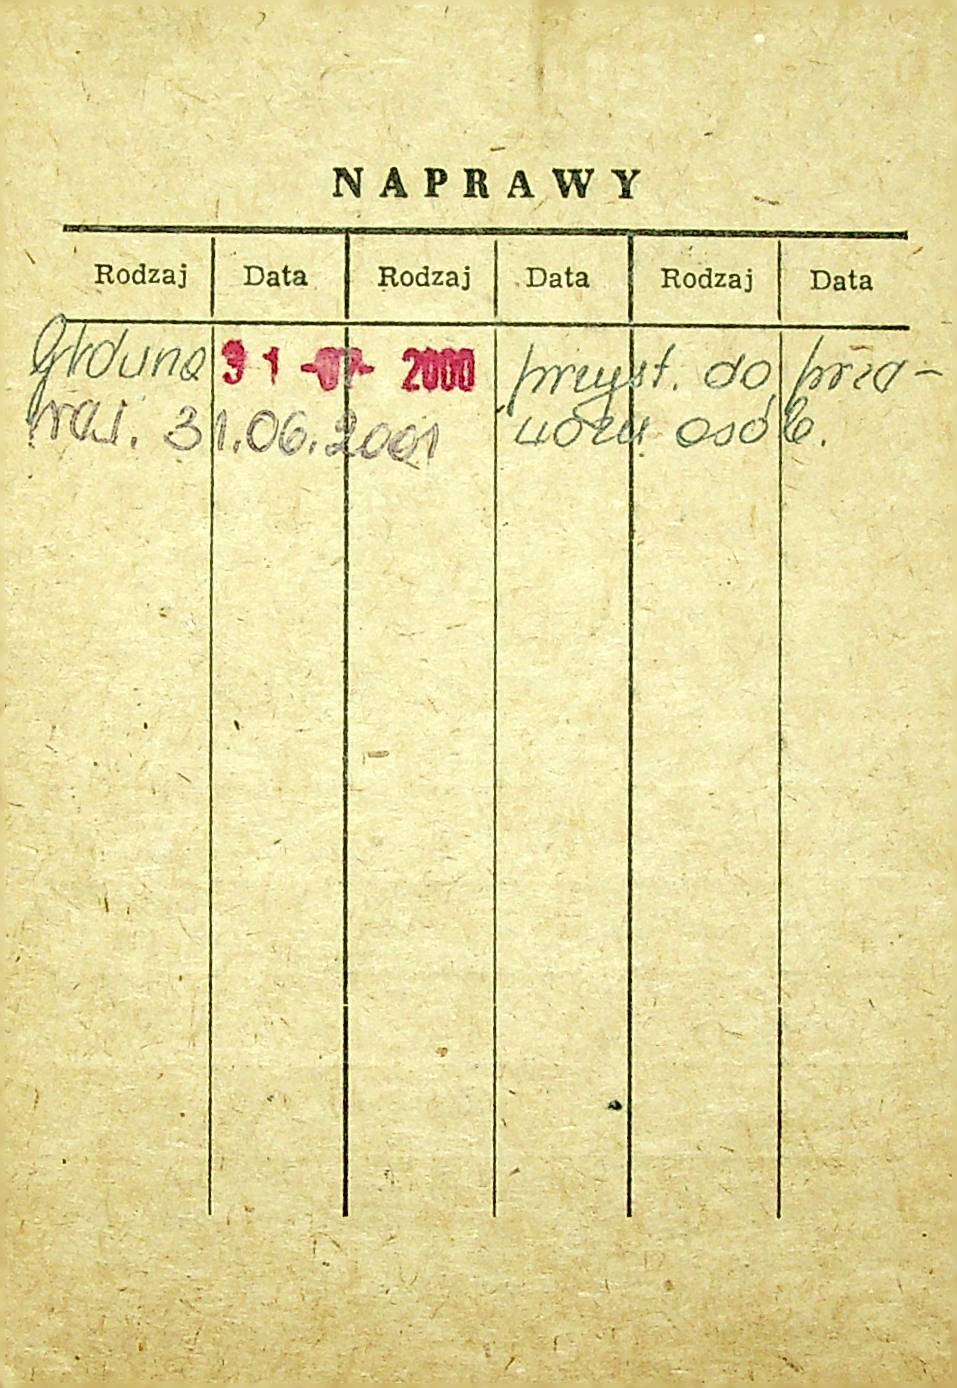 NAPRAWY
Rodzaj Data Rodzaj Data Rodzaj Data
Główna 31 -07- 2000 przyst. do prze-
wozu osób.
31.06.2001